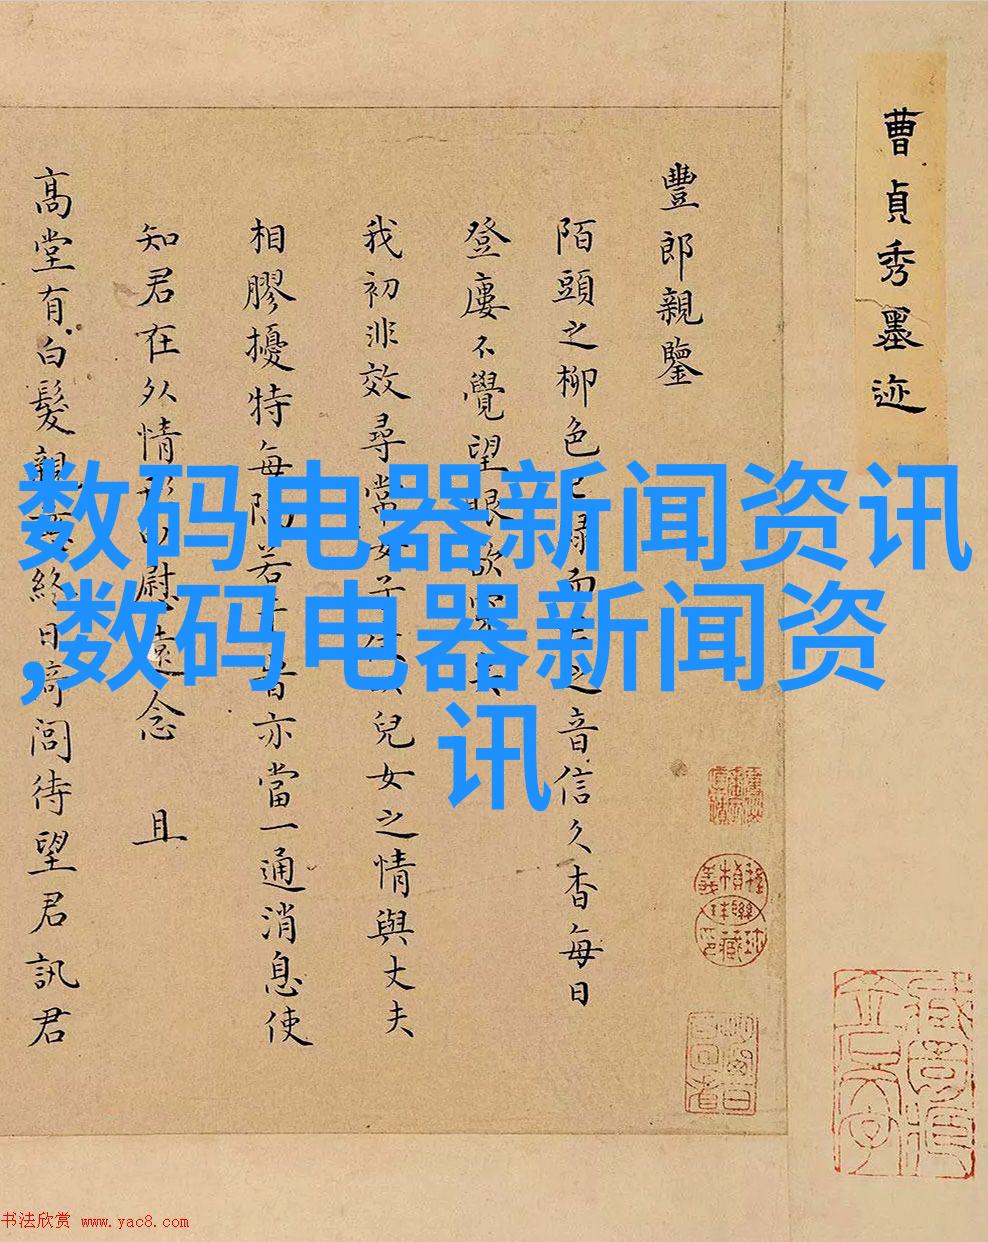 曹貞秀墨迹
豐郎親鑒
陌頭之柳色已 而 之音信久杳每日
登廔不覺望眼欲穿
我初非效尋常女子 兒女之情與丈夫
相膠擾特每隔若干 者亦當一通消息使
知君在外情形以慰遠念 且
高堂有白髮親 終日倚閭待望君訊君
数码电器新闻资讯
,数码电器新闻资
讯
书法欣赏 www.yac8.com